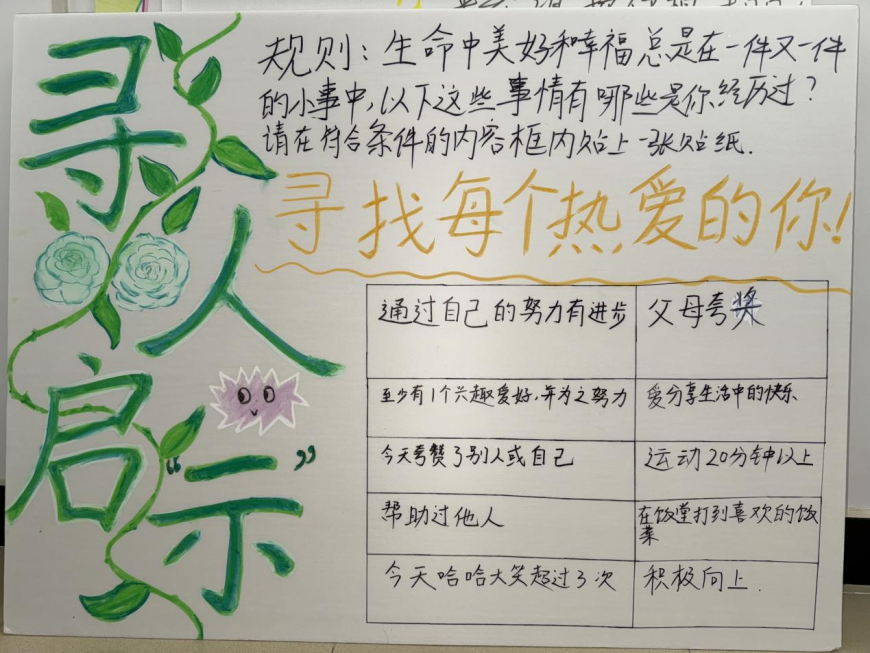 寻人启“示”
规则：生命中美好和幸福总是在一件又一件
的小事中，以下这些事情有哪些是你经历过？
请在符合条件的内容框内贴上一张贴纸．
寻找每个热爱的你！
通过自己的努力有进步 父母夸奖
至少有1个兴趣爱好，并为之努力 爱分享生活中的快乐
今天夸赞了别人或自己 运动20分钟以上
帮助过他人 在饭堂打到喜欢的饭
菜
今天哈哈大笑超过3次 积极向上．